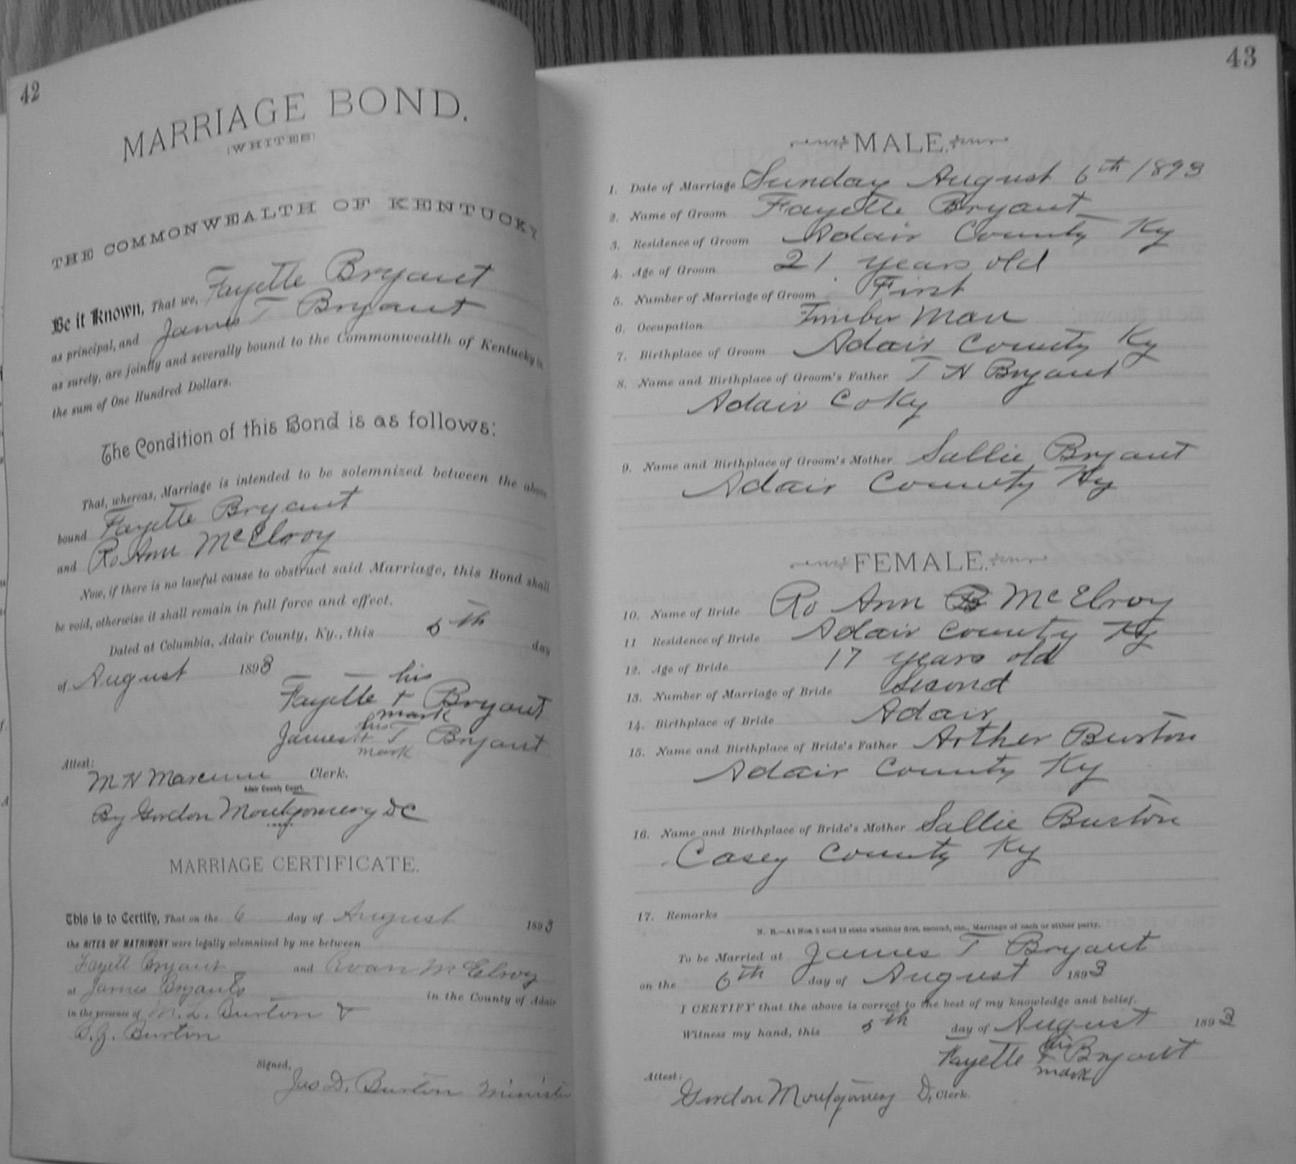 42
MARRIAGE BOND.
(WHITES)
THE COMMONWEALTH OF KENTUCKY
Be it Known, That we, Fayette Bryant
as principal, and James T Bryant
as surety, are jointly and severally bound to the Commonwealth of Kentucky in
the sum of One Hundred Dollars.
The Condition of this Bond is as follows:
That, whereas, Marriage is intended to be solemnized between the above
bound Fayette Bryant
and Ro Ann McElroy
Now, if there is no lawful cause to obstruct said Marriage, this Bond shall
be void, otherwise it shall remain in full force and effect.
Dated at Columbia, Adair County, Ky., this 5th day
of August 1893
his
Fayette + Bryant
mark
his
James + T Bryant
mark
Attest:
M H Clerk.
Adair County Court.
By Gordon Montgomery DC
MARRIAGE CERTIFICATE.
This is to Certify, That on the 6 day of August 1893
the RITES OF MATRIMONY were legally solemnized by me between
Fayett Bryant and Roan McElroy
at James Bryants in the County of Adair
in the presence of M. L. Burton &
Burton
Signed,
Jas D. Burton Minister
43
MALE.
1. Date of Marriage Sunday August 6th 1893
2. Name of Groom Fayette Bryant
3. Residence of Groom Adair County Ky
4. Age of Groom 21 years old
5. Number of Marriage of Groom First
6. Occupation Timber Man
7. Birthplace of Groom Adair County Ky
8. Name and Birthplace of Groom's Father T H Bryant
Adair Co Ky
9. Name and Birthplace of Groom's Mother Sallie Bryant
Adair County Ky
FEMALE.
10. Name of Bride Ro Ann B McElroy
11 Residence of Bride Adair County Ky
12. Age of Bride 17 years old
13. Number of Marriage of Bride Second
14. Birthplace of Bride Adair
15. Name and Birthplace of Bride's Father Arther Burton
Adair County Ky
16. Name and Birthplace of Bride's Mother Sallie Burton
Casey County Ky
17. Remarks
N. B.—At Nos 5 and 13 state whether first, second, etc., Marriage of each or either party.
To be Married at James T Bryant
on the 6th day of August 1893
I CERTIFY that the above is correct to the best of my knowledge and belief.
Witness my hand, this 5th day of August 1893
his
Fayette + Bryant
mark
Attest:
Gordon Montgomery D, Clerk.